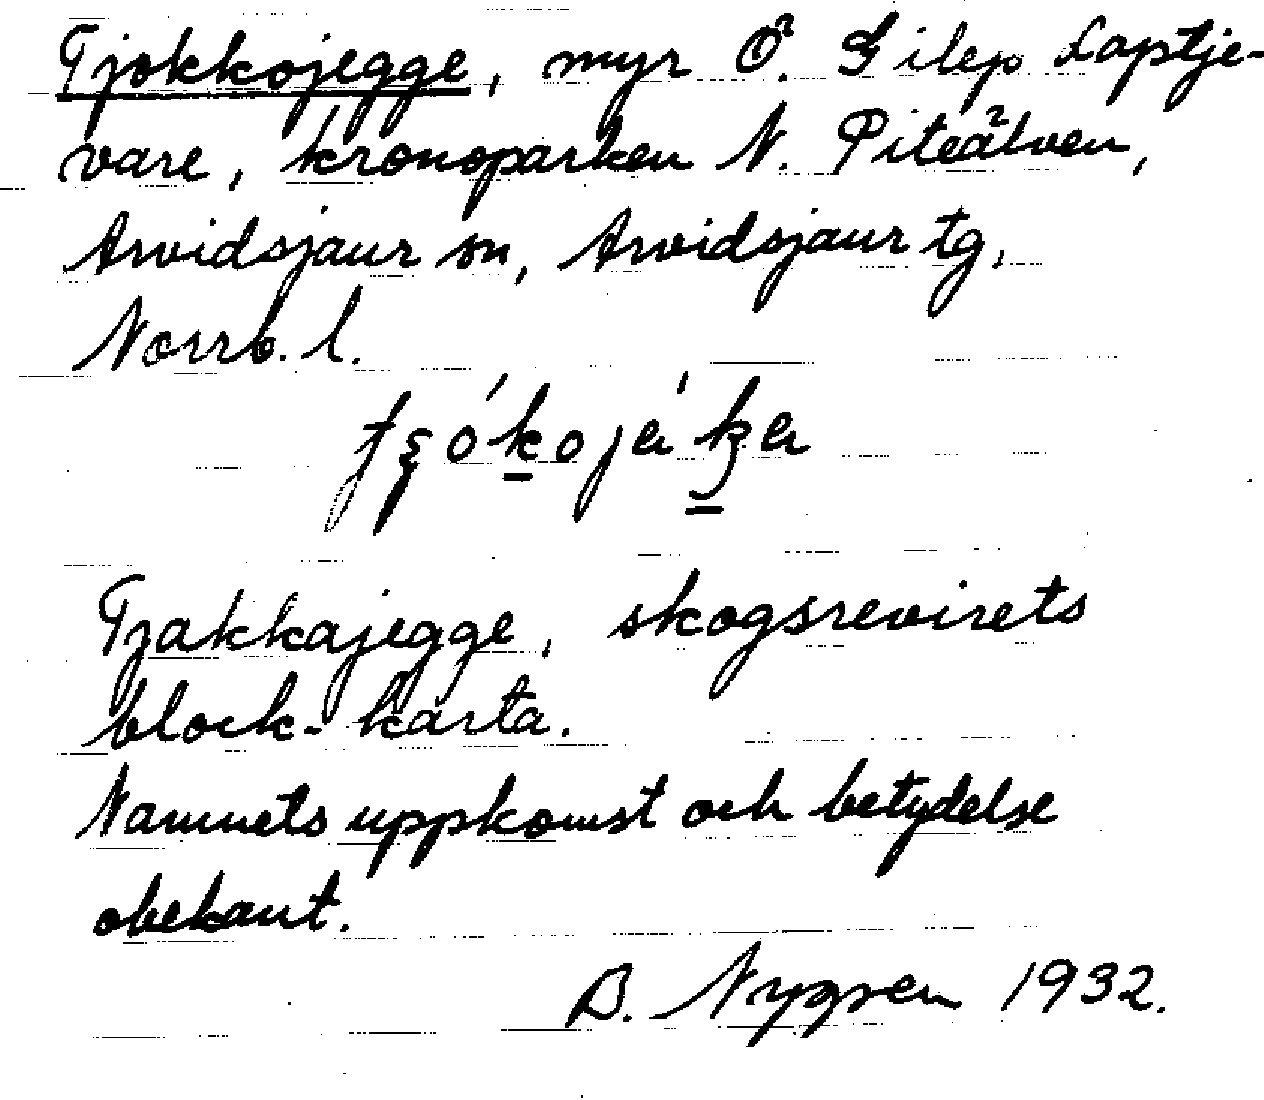 Tjokkojegge, myr Ö. Gilep Laptje-
vare, kronoparken N. Piteälven,
Arvidsjaur sn, Arvidsjaur tg,
Norrb. l.
Tjakkajegge, skogsrevirets
block-karta.
Namnets uppkomst och betydelse
obekant.
B. Nygren 1932.